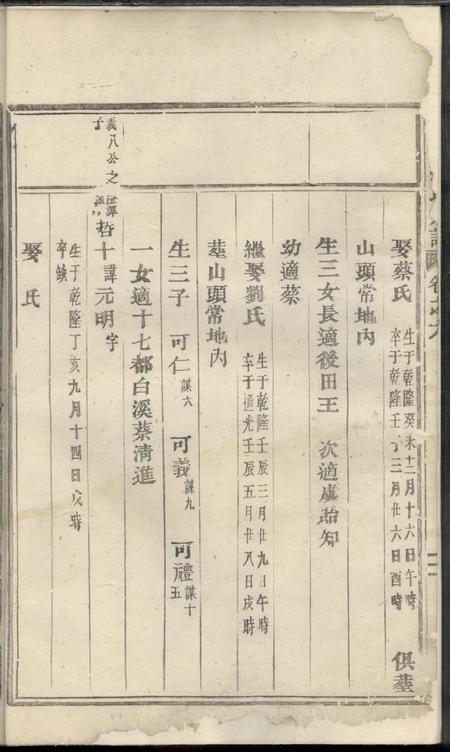 娶蔡氏 生于乾隆癸未十二月十六日午時 俱塟
卒于乾隆壬子三月廿六日酉時
山頭常地內
生三女長適後田王 次適虞蛤知
幼適蔡
繼娶劉氏 生于乾隆壬辰三月廿九日午時
卒于道光壬辰五月廿八日戌時
塟山頭常地內
生三子 可仁謀六 可義謀九 可禮謀十五
一女適十七都白溪蔡清進
義八公之子
哲十諱元明字
生于乾隆丁亥九月十四日亥時
卒缺
娶 氏